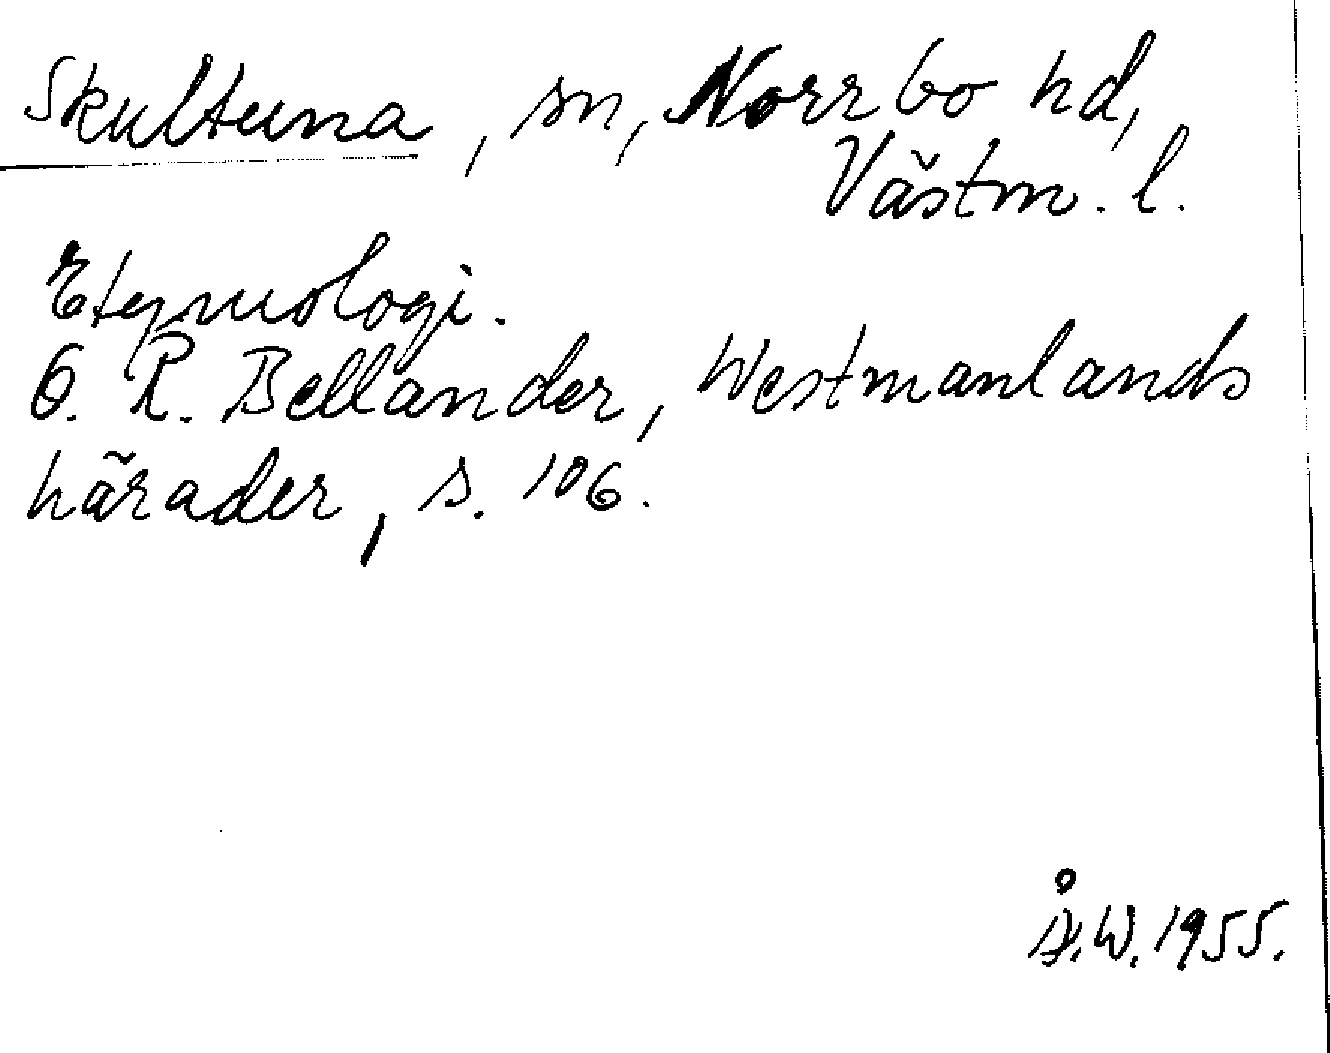 Skultuna, sn, Norrbo hd,
Västm. l.
Etymologi.
O. R. Bellander, Westmanlands
härader, s. 106.
Å.W. 1955.